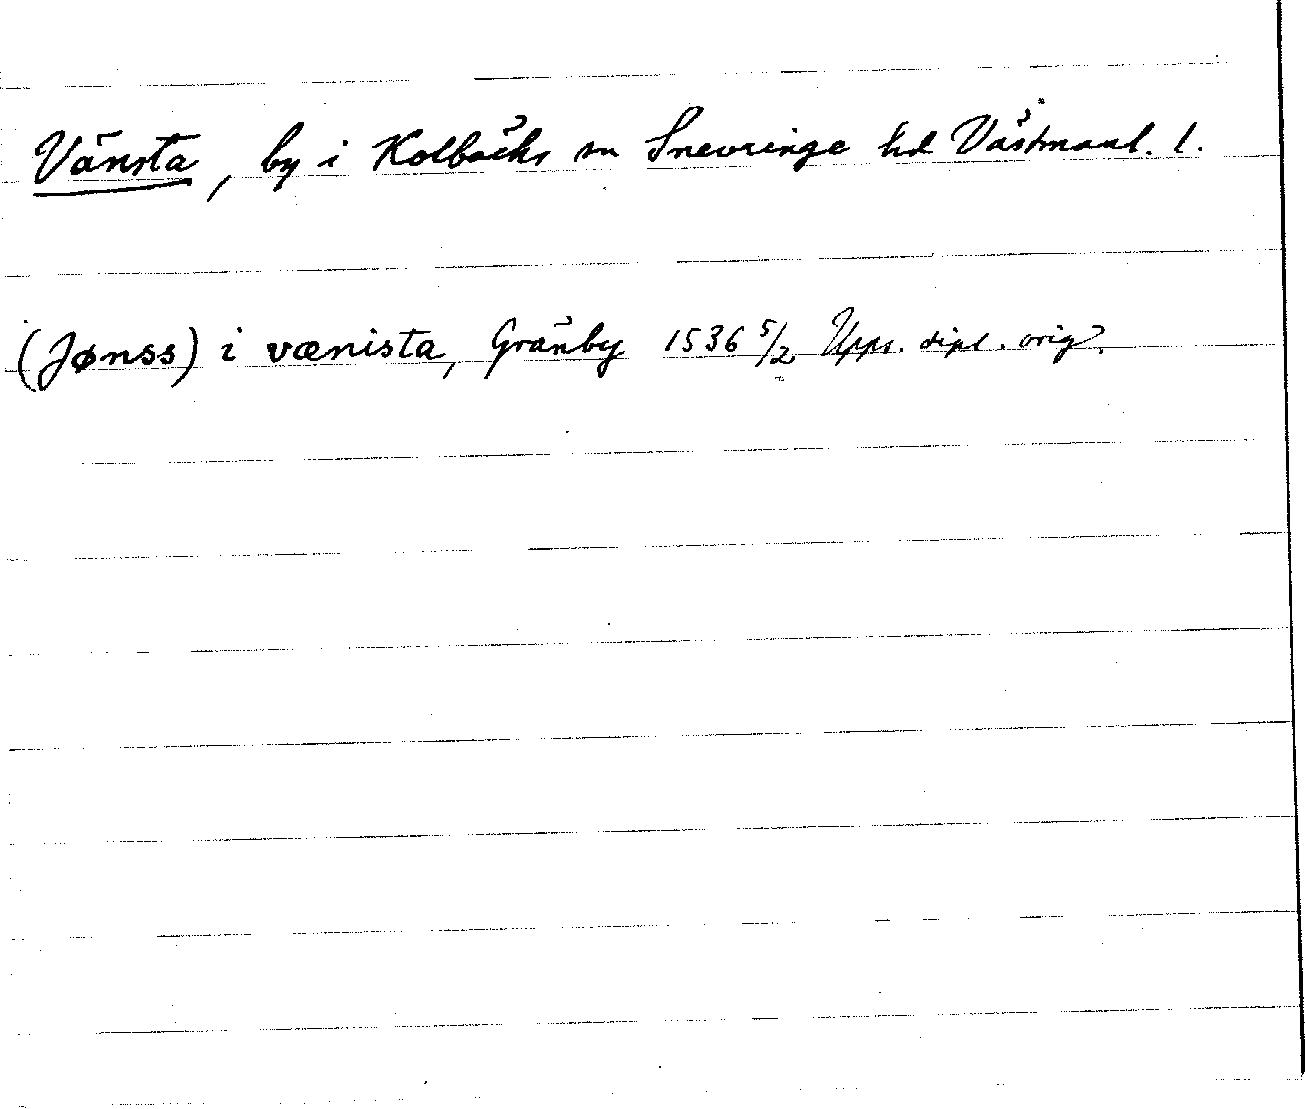 Vänsta, by i Kolbäcks sn Snevringe hd Västmanl. l.
(Jønss) i vænista, Gränby 1536 5/2 Upps. dipl. orig.